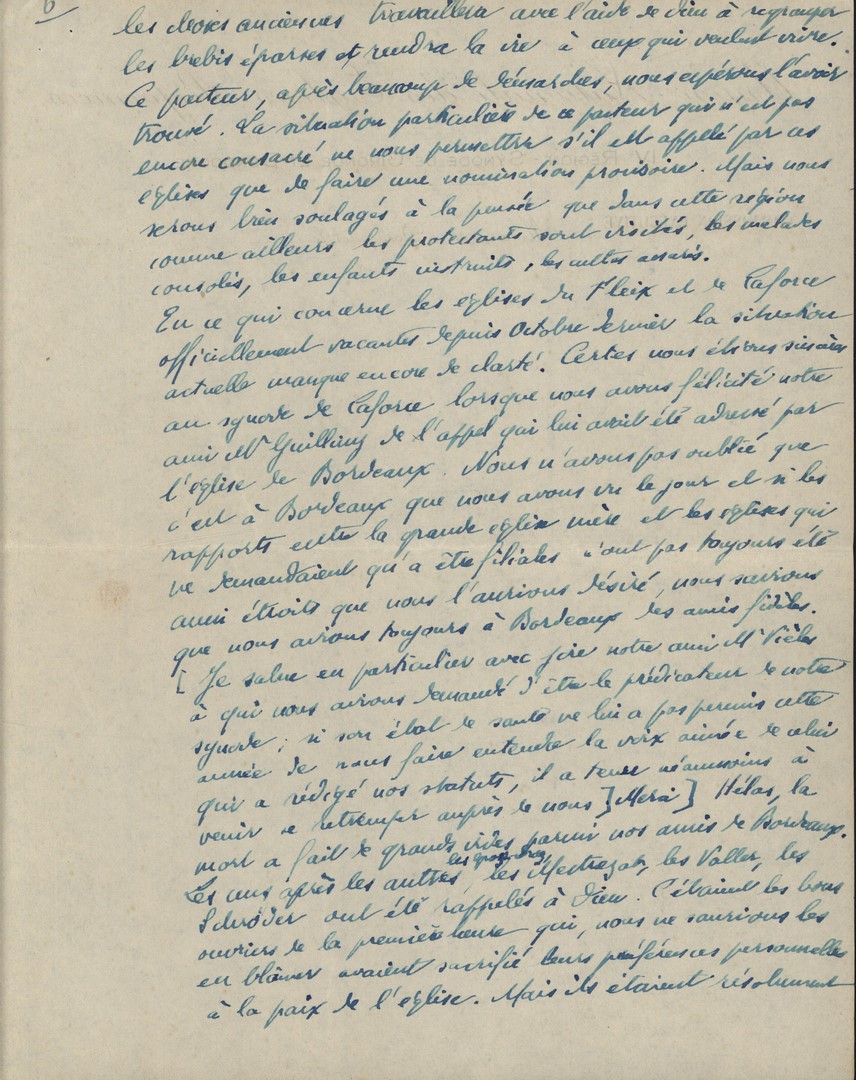 6
les choses anciennes travaillera avec l'aide de Dieu à regrouper
les brebis éparses et rendra la vie à ceux qui veulent vivre.
Ce pasteur, après beaucoup de démarches, nous espérons l'avoir
trouvé. La situation particulière de ce pasteur qui n'est pas
encore consacré ne nous permettra s'il est appelé par ces
eglises que de faire une nomination provisoire. Mais nous
serons bien soulagés à la pensée que dans cette région
comme ailleurs les protestants sont visités, les malades
consolés, les enfants instruits, les cultes assurés.
En ce qui concerne les eglises du Fleix et de Laforce
officiellement vacantes depuis Octobre dernier la situation
actuelle manque encore de clarté. Certes nous étions sincères
au synode de Laforce lorsque nous avons félicité notre
ami Mr Guilling de l'appel qui lui avait été adressé par
l'église de Bordeaux. Nous n'avons pas oublié que
c'est à Bordeaux que nous avons vu le jour et si les
rapports entre la grande eglise mère et les eglises qui
ne demandaient qu'a être filiales n'ont pas toujours été
aussi étroits que nous l'aurions désiré, nous savions
que nous avions toujours à Bordeaux des amis fidèles.
[ Je salue en particulier avec joie notre ami Mr
à qui nous avions demandé d'être le prédicateur de notre
synode ; si son état de santé ne lui a pas permis cette
année de nous faire entendre la voix aimée de celui
qui a rédigé nos statuts, il a tenu néanmoins à
venir se retremper auprès de nous ] Merci ] Hélas, la
mort a fait de grands vides parmi nos amis de Bordeaux.
Les uns après les autres les Mestrezat, les Valler, les
Schröder ont été rappelés à Dieu. C'étaient les bons
ouvriers de la première heure qui, nous ne saurions les
en blâmer avaient sacrifié leurs préférences personnelles
à la paix de l'église. Mais ils étaient résolument